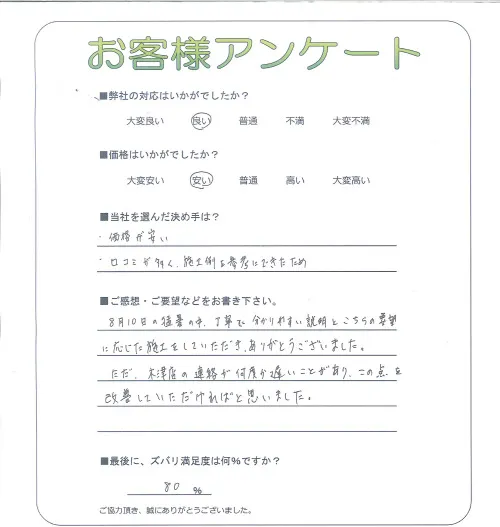 お客様アンケート
■弊社の対応はいかがでしたか？
大変良い 良い 普通 不満 大変不満
■価格はいかがでしたか？
大変安い 安い 普通 高い 大変高い
■当社を選んだ決め手は？
・価格が安い
・口コミが多く、施工例も参考にできたため
■ご感想・ご要望などをお書き下さい。
8月10日の猛暑の中、丁寧で分かりやすい説明とこちらの要望
に応じた施工をしていただき、ありがとうございました。
ただ、木津店の連絡が何度か遅いことがあり、この点を
改善していただければと思いました。
■最後に、ズバリ満足度は何%ですか？
80 %
ご協力頂き、誠にありがとうございました。